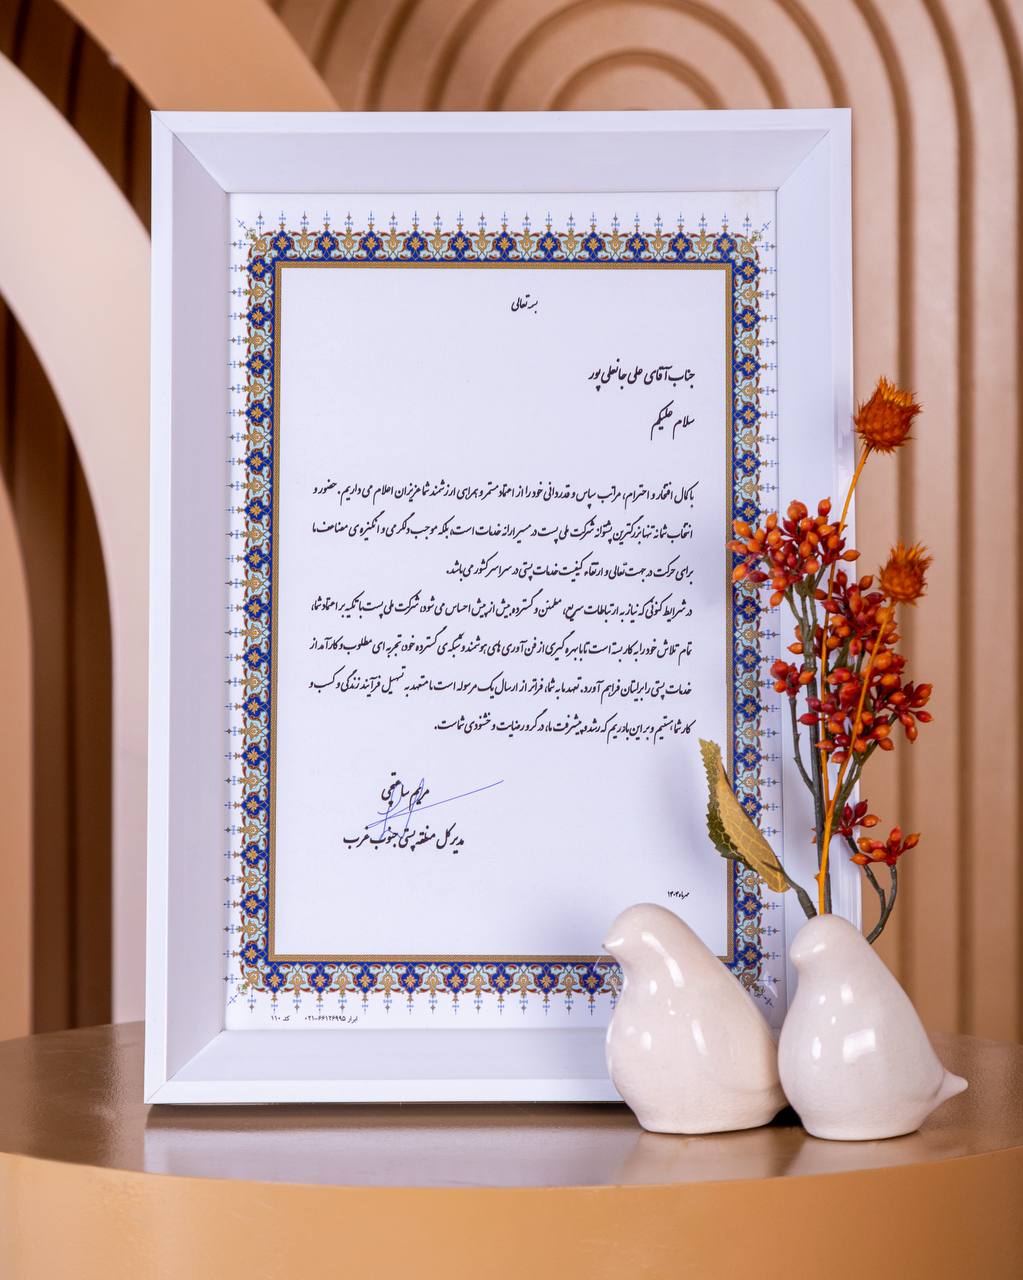 بسمه تعالی
جناب آقای علی جانعلی پور
سلام علیکم
با کمال افتخار و احترام، مراتب سپاس و قدردانی خود را از اعتماد مستمر و همراهی ارزشمند شما عزیزان اعلام می داریم. حضور و
انتخاب شما نه تنها بزرگترین پشتوانه شرکت ملی پست در مسیر ارائه خدمات است، بلکه موجب دلگرمی و انگیزه ی مضاعف ما
برای حرکت در جهت تعالی و ارتقاء کیفیت خدمات پستی در سراسر کشور می باشد.
در شرایط کنونی که نیاز به ارتباطات سریع، مطمئن و گسترده بیش از پیش احساس می شود، شرکت ملی پست با تکیه بر اعتماد شما،
تمام تلاش خود را به کار بسته است تا با بهره گیری از فن آوری های هوشمند و شبکه ی گسترده خود، تجربه ای مطلوب و کارآمد از
خدمات پستی را برایتان فراهم آورد. تعهد ما به شما، فراتر از ارسال یک مرسوله است ما متعهد به تسهیل فرآیند زندگی و کسب و
کار شما هستیم و بر این باوریم که رشد و پیشرفت ما، در گرو رضایت و خشنودی شماست.
مریم ساعتچی
مدیرکل منطقه پستی جنوب غرب
مهرماه ۱۴۰۴
ابرار ۶۶۱۲۶۹۹۵-۰۲۱ کد ۱۱۰